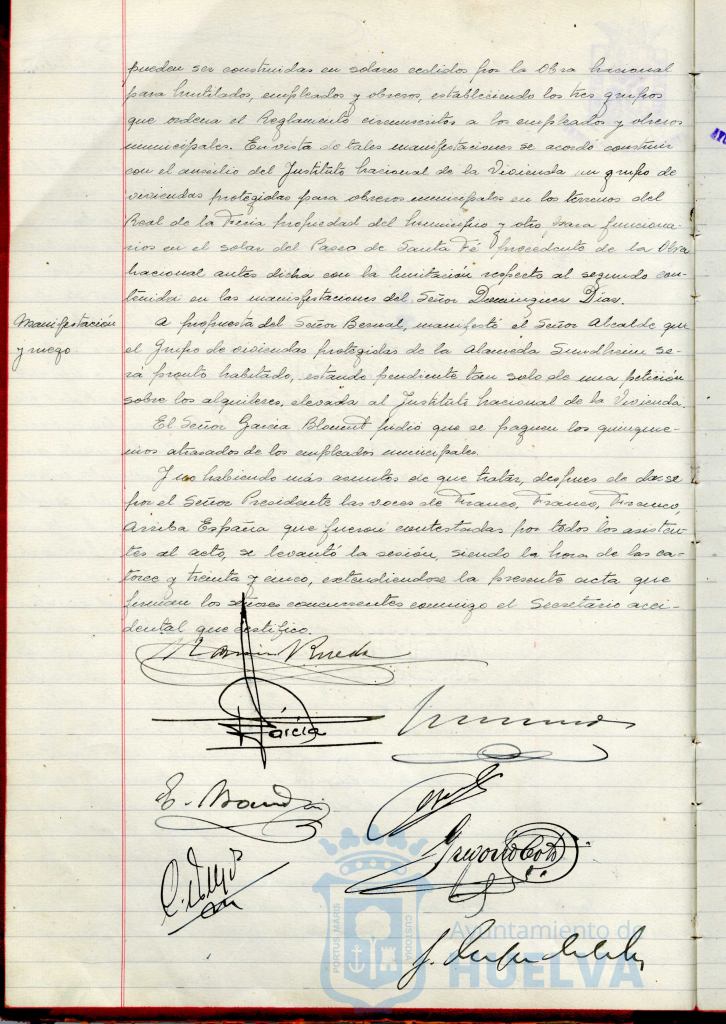 pueden ser construidas en solares cedidos por la Obra Nacional
para Mutilados, empleados y obreros, estableciendo los tres grupos
que ordena el Reglamento circunscritos a los empleados y obreros
municipales. En vista de tales manifestaciones se acordó construir
con el auxilio del Instituto Nacional de la Vivienda un grupo de
viviendas protegidas para obreros municipales en los terrenos del
Real de la Feria propiedad del Municipio y otro para funciona-
rios en el solar del Paseo de Santa Fé procedente de la Obra
Nacional antes dicha con la limitación respecto al segundo con-
tenida en las manifestaciones del Señor Dominguez Dias.
Manifestación
y ruego
A propuesta del Señor Bernal, manifestó el Señor Alcalde que
el Grupo de viviendas protegidas de la Alameda Sundheim se-
rá pronto habitado, estando pendiente tan solo de una petición
sobre los alquileres, elevada al Instituto Nacional de la Vivienda.
El Señor García pidió que se paguen los quinque-
nios atrasados de los empleados municipales.
Y no habiendo más asuntos de que tratar, despues de darse
por el Señor Presidente las voces de Franco, Franco, Franco,
Arriba España que fueron contestadas por todos los asisten-
tes al acto, se levantó la sesión, siendo la hora de las ca-
torce y treinta y cinco, extendiendose la presente acta que
firman los señores concurrentes conmigo el Secretario acci-
dental que certifico.
Rueda
García
E.
Gregorio
PORTUS MARIS
CUSTODIA
Ayuntamiento de
HUELVA